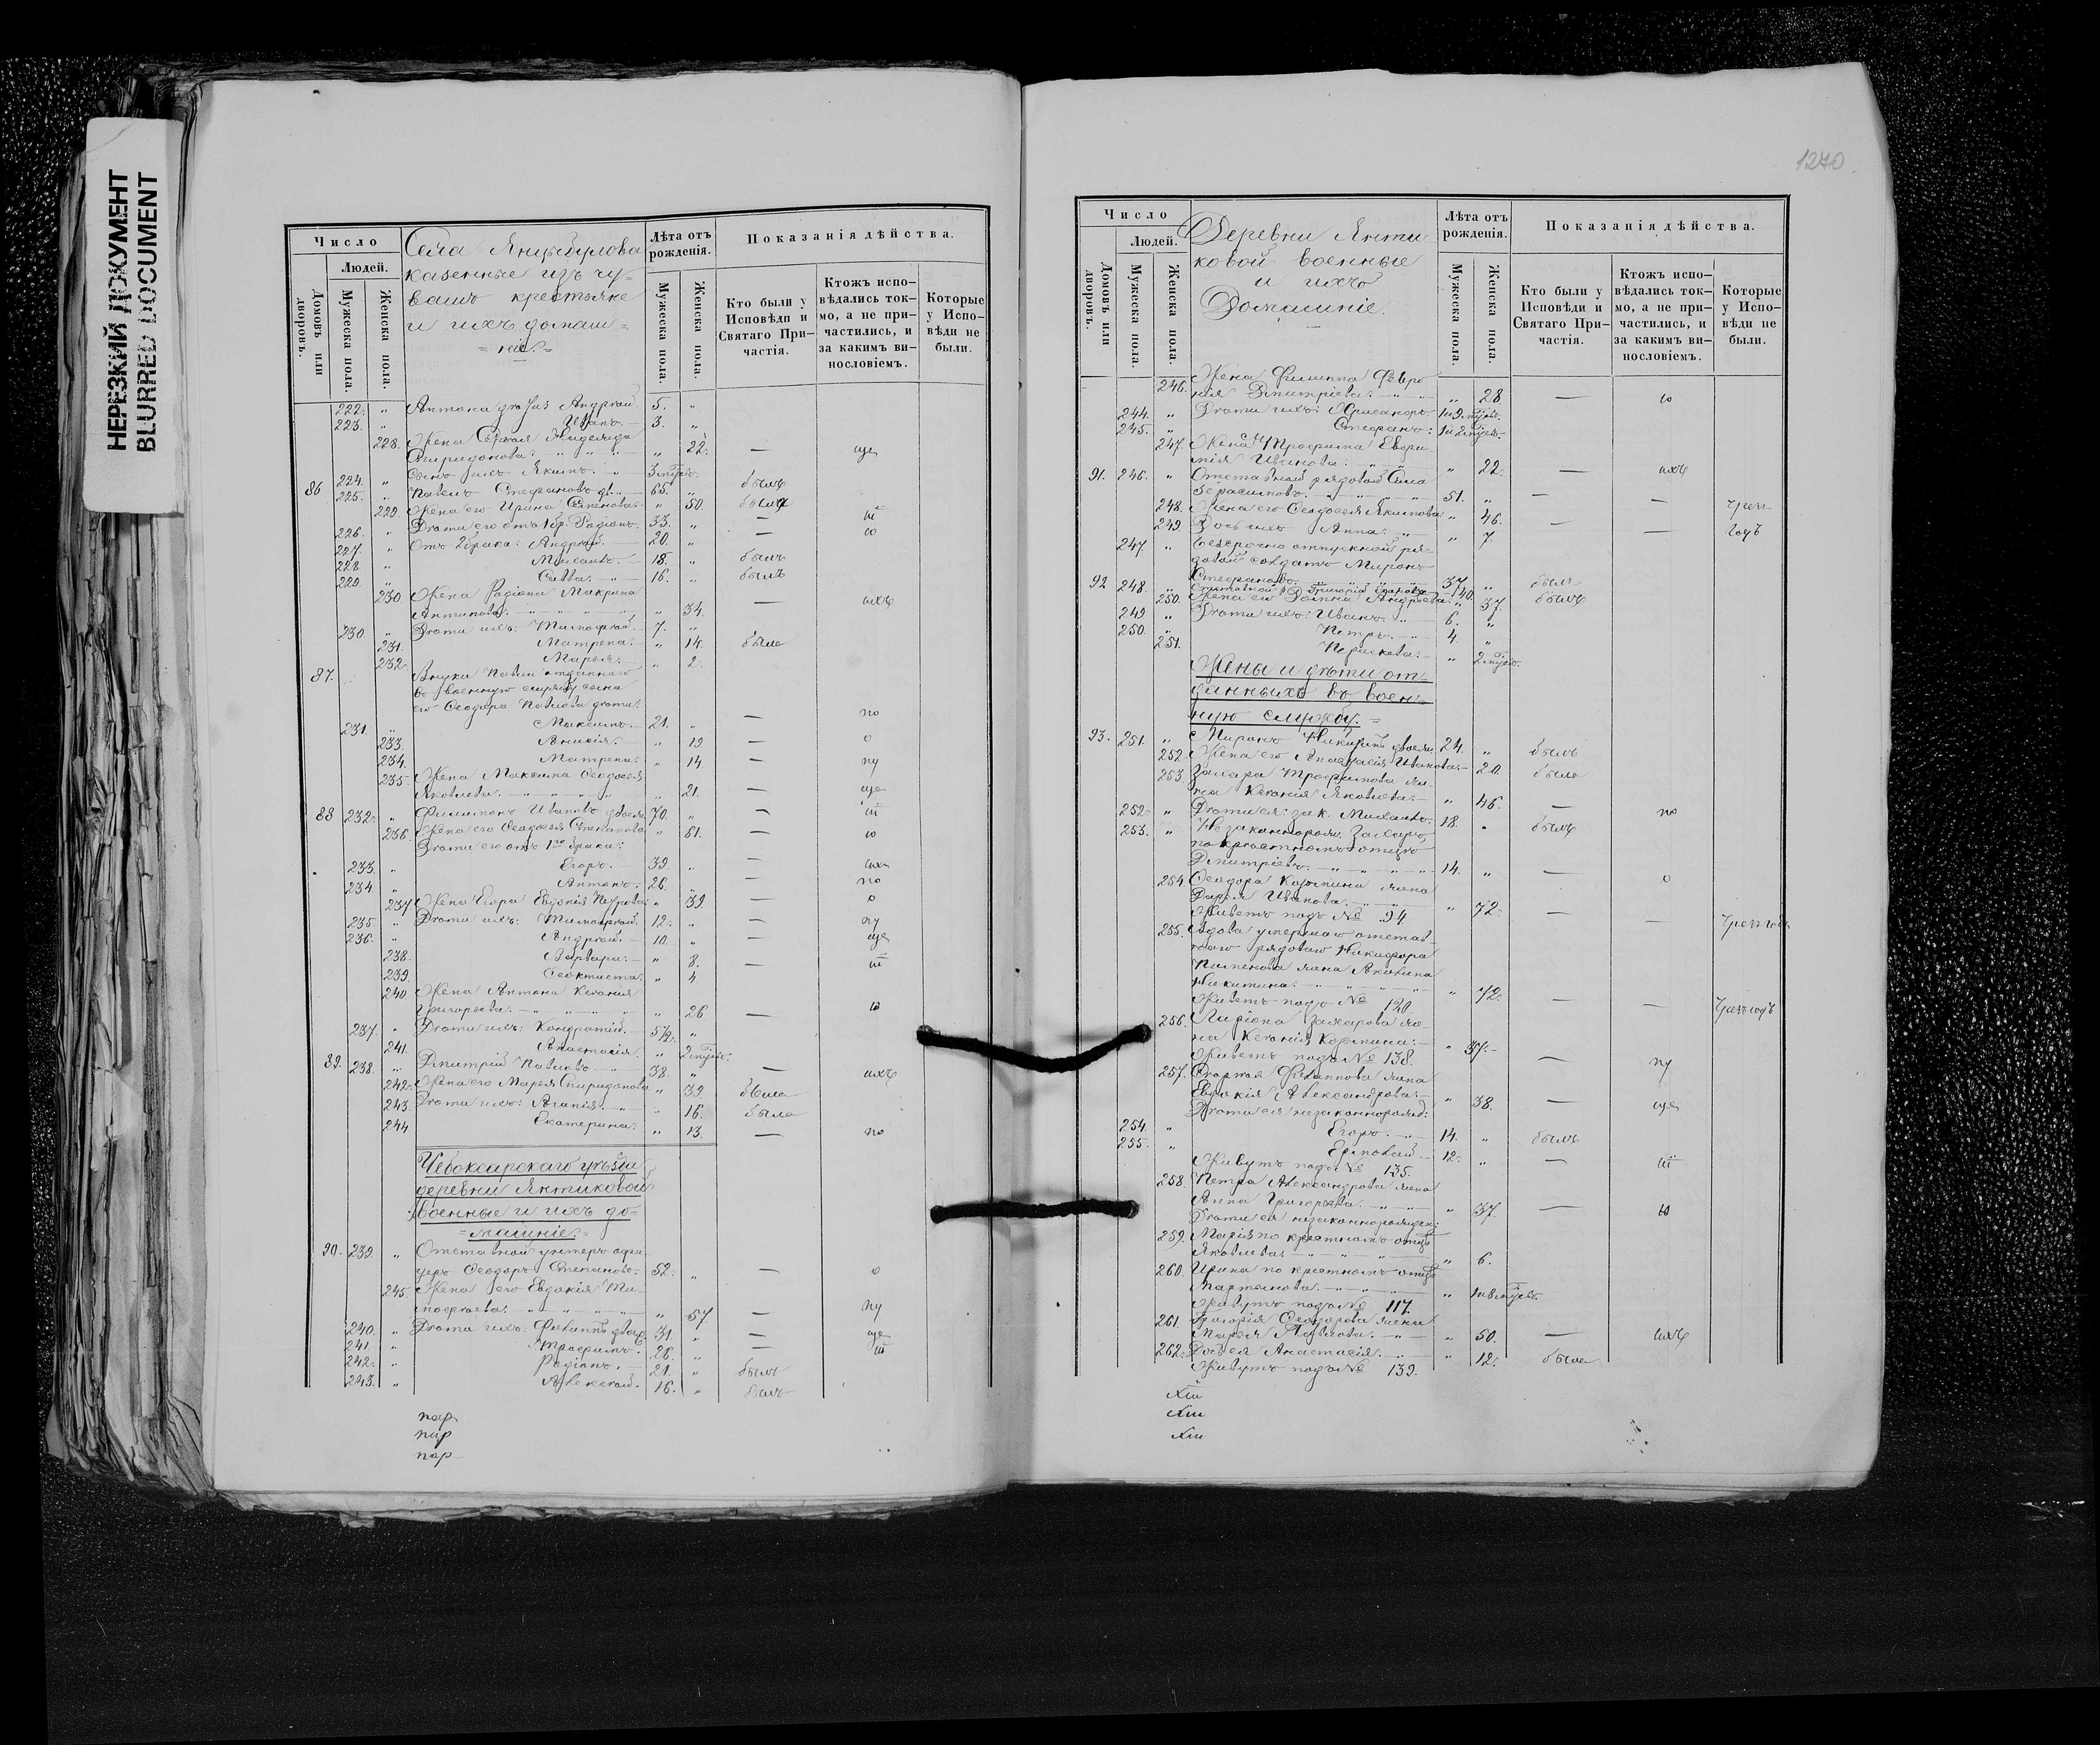 НЕРЕЗКИЙ ДОКУМЕНТ
BLURRED DOCUMENT
Число
Людей.
Домовъ или дворовъ.
Мужеска пола.
Женска пола.
Села Янгильдина
казенные изъ чу=
вашъ крестьяне
и ихъ домаш=
=ніе.=
Лѣта отъ рожденія.
Мужеска пола.
Женска пола.
Показанія дѣйства.
Кто были у Исповѣди и Святаго Причастія.
Ктожъ исповѣдались токмо, а не причастились, и за какимъ винословіемъ.
Которые у Исповѣди не были.
222. „ Антона Андрей. 5. „
223. „ Иванъ. 3. „
228. Жена Сергея
Спиридонова. „ 22. —
224. „ Сынъ ихъ Якимъ. 3 
86 225. „ Павелъ Стефановъ 65. „ былъ
229. Жена его Ирина Семенова „ 50. была
226. „ Дети его отъ 1 бр. Родіонъ. 33. „ —
227. „ Отъ 2 брака: Андрей. 20. „ —
228. „ Михаилъ. 18. „ былъ
229. „ Савва. 16. „ былъ
230. Жена Родіона Макрина
Антипова. „ 34. —
230. „ Дети ихъ: Тимофей. 7. „
231. Матрена. „ 14. была
232. Марья. „ 2.
87. Внуки Павла отданнаго
въ военную службу сына
его Феодора Павлова дети:
231. „ Максимъ. 21. „ — по
233. Анисія. „ 19 — о
234. Матрена. „ 14 — пу
235. Жена Максима Феодосія
Яковлева. „ 21. — ще
88 232. „ Филимонъ Ивановъ 70. „ —
236. Жена его Феодосія Степанова „ 61. — ю
Дети его отъ 1го брака:
233. „ Егоръ. 39 „ —
234. „ Антонъ. 26. „ — по
237 Жена Егора Евдокія Петрова „ 39. — о
235. „ Дети ихъ: Тимофей. 12. „ — пу
236. „ Андрей. 10. „ — ще
238. Варвара. „ 8. —
239. Феоктиста. „ 4
240 Жена Антона Ксенія
Григорьева. „ 26 — ю
237. „ Дети ихъ: Кондратій. 5½. „
241. Анастасія. „ 2
89. 238. „ Дмитрій Павловъ. 38. „ —
242. Жена его Марья Спиридонова „ 39. была
243. Дети ихъ: Агапія. „ 16. была
244 Екатерина. „ 13. — по
Чебоксарскаго уѣзда
деревни Янтиковой
военные и ихъ до=
=машніе.=
90. 239. „ Отставной унтеръ офи
церъ Феодоръ Степановъ. 52. „ — о
245. Жена его Евдокія Ти
мофеева. „ 57 — пу
240. „ Дети ихъ: Филиппъ 31. „ — ще
241 „ Трофимъ. 26. „ —
242. „ Родіонъ. 21. „ былъ
243. „ Алексей. 16. „ былъ
пар
пар
пар
1270.
Число
Людей.
Домовъ или дворовъ.
Мужеска пола.
Женска пола.
Деревни Янти
ковой военные
и ихъ
Домашніе.
Лѣта отъ рожденія.
Мужеска пола.
Женска пола.
Показанія дѣйства.
Кто были у Исповѣди и Святаго Причастія.
Ктожъ исповѣдались токмо, а не причастились, и за какимъ винословіемъ.
Которые у Исповѣди не были.
246. Жена Филиппа Февро
нія Дмитріева. „ 28 — ю
244. „ Дети ихъ: Хрисанфъ
245. „ Стефанъ:
247. Жена Трофима Евфи
мія Иванова. „ 22. —
91. 246. „ Отставной рядовой Сила
Герасимовъ. 51. „ — —
248. Жена его Феодосія Якимова „ 46. — —
249. Дочь ихъ Анна. „ 7.
247 „ Безсрочно отпускной ря
довой солдатъ Миронъ
Стефановъ. 37. „ былъ
92 248. „ Отставной Григорій 40 былъ
250. Жена его Андреева. „ 37.
249. „ Дети ихъ: Иванъ. 6. „
250. „ Петръ. 4. „
251. Параскева. „ 2
Жены и дѣти от-
данныхъ въ воен-
ную службу.=
93. 251. „ Миронъ 24. „ былъ
252. Жена его Анастасія Иванова. 20. была
253. Захара Трофимова же
на Ксенія Яковлева. „ 46. — по
252. „ Дети ея: зак. Михаилъ. 18. „ былъ
253. „ Незаконнорож. Захаръ,
по крестномъ отцѣ
Дмитріевъ. 14. „ — о
254 Феодора жена
Дарья Иванова. „ 72. —
Живетъ подъ № 94
255. Вдова умершаго отстав
наго рядоваго Никифора
Пименова жена Акилина
Никитина. „ 72. —
Живетъ подъ № 120.
256. Ларіона Захарова же
на Ксенія „ 37. — пу
Живетъ подъ № 138.
257. Филиппова жена
Евдокія Александрова. „ 38. — ще
Дети ея незаконнорожд:
254. „ Егоръ. 14. „ былъ
255. „ Ермолай. 12. „ —
Живутъ подъ № 135.
258. Петра Александрова жена
Анна Григорьева. „ 37. — ю
Дети ея незаконнорожден:
259. Марія по крестномъ отцѣ
Яковлева. „ 6.
260. Ирина по крестномъ отцѣ
Мартынова. „
Живутъ подъ № 117.
261. Григорія Феодорова жена
Марья Павлова. „ 50. —
262. Дочь ея Анастасія. „ 12. была
Живутъ подъ № 139.